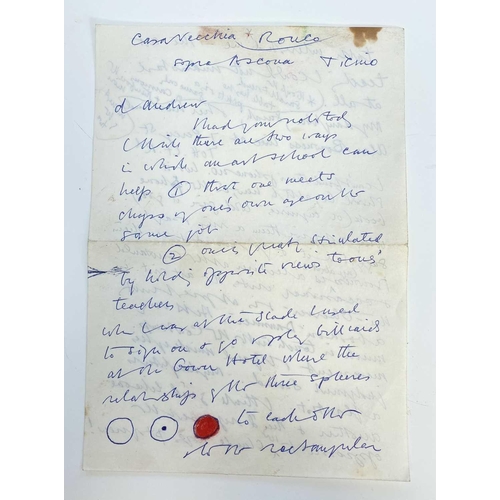 Casa Vecchia Ronco
sopra Ascona Ticino
d Andrew
I had your note today
I think there are two ways
in which an art school can
help ① that one meets
chaps of one's own age on the
same job
② one is greatly stimulated
by holding opposite views to ones'
teachers
when I was at the Slade I used
to sign on & go & play billiards
at the Gower Hotel where the
relationships of the three spheres
to each other
& to the rectangular